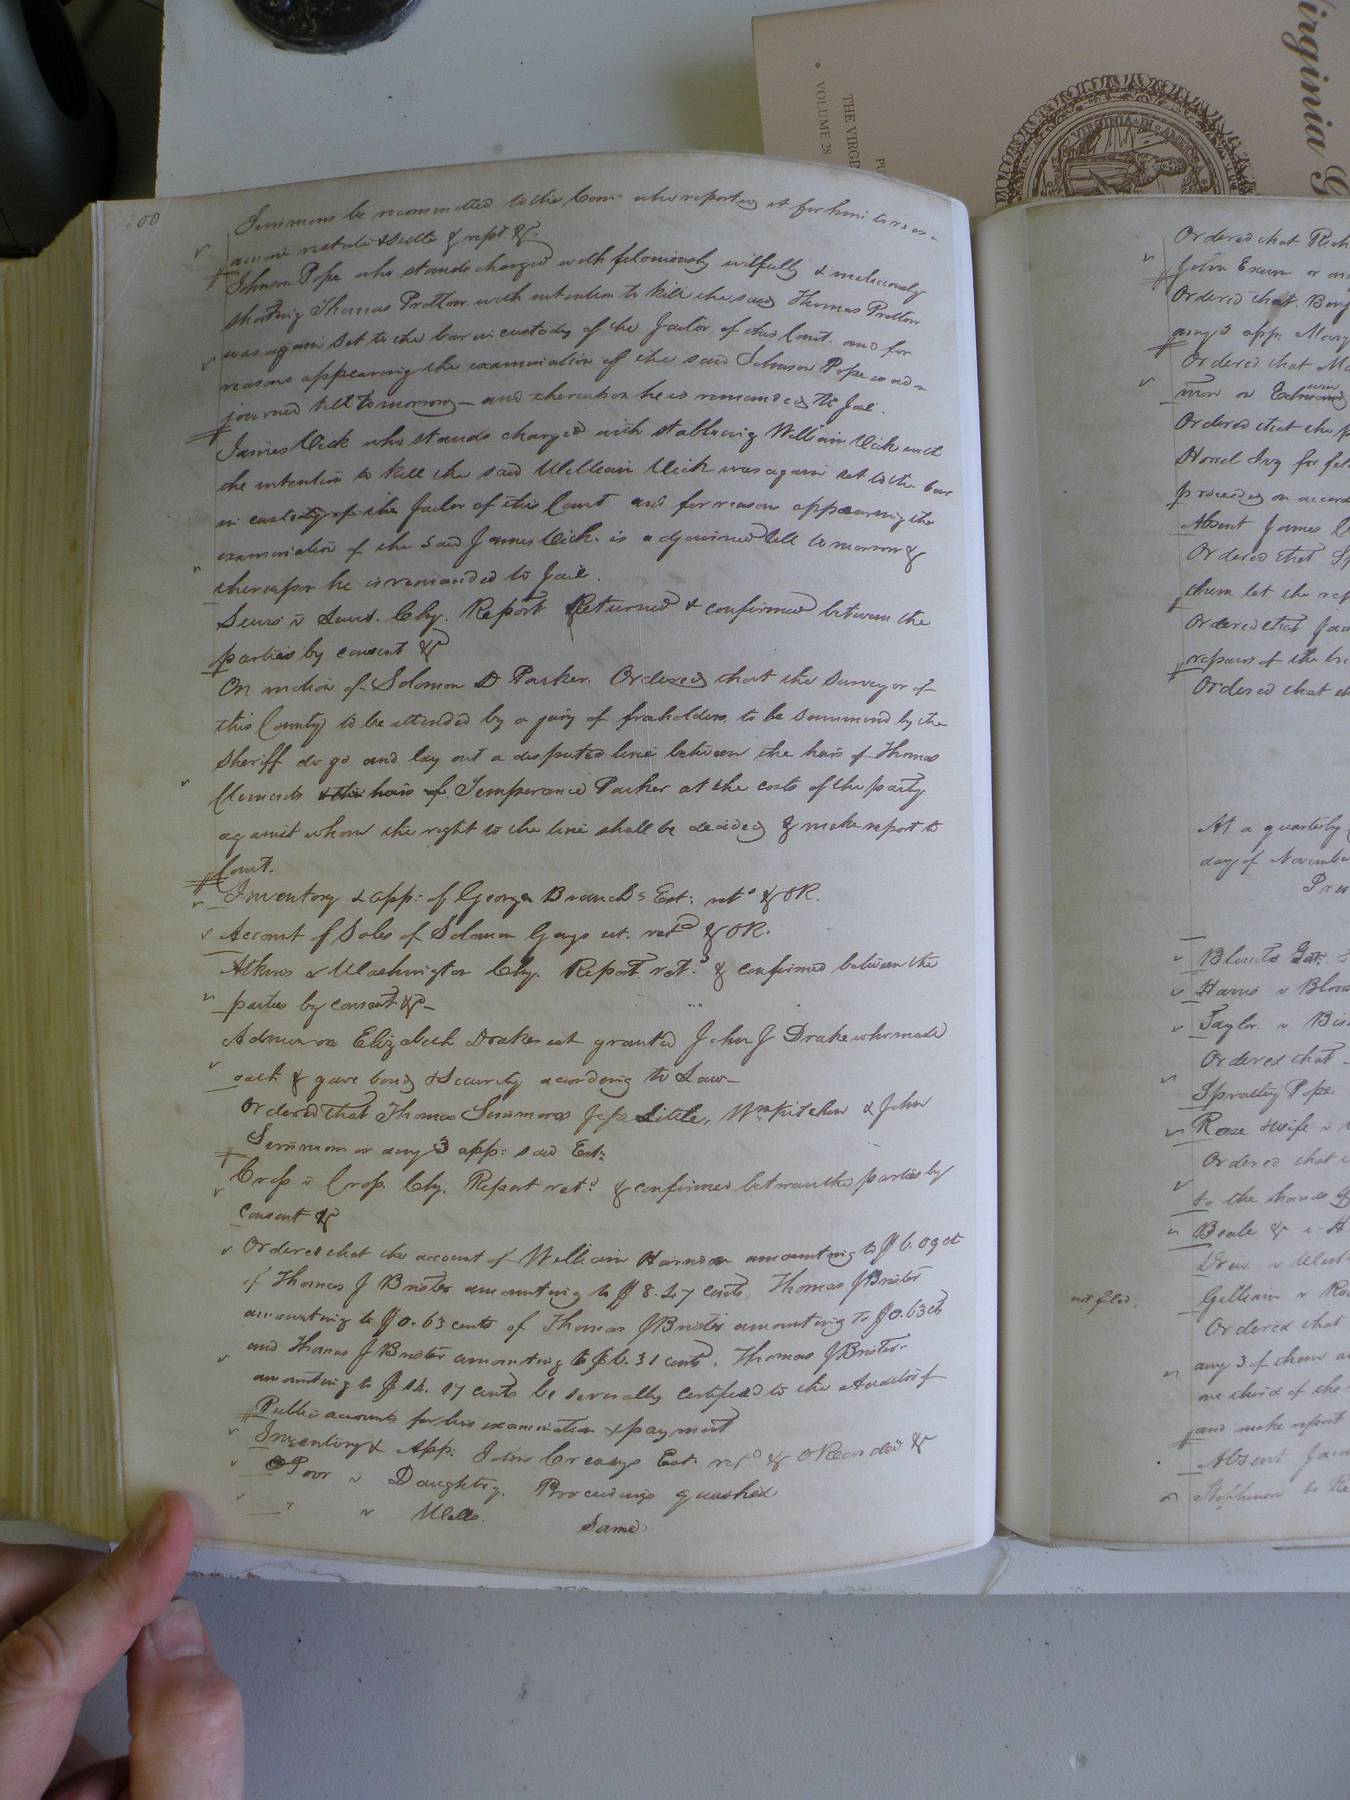 Virginia G
THE VIRGIN
VOLUME 28
PU
VIRGINIA
00
Simmons be recommitted to the Com who reporting it for him to re
amine restate & settle & rept &c
Johnson Pope who stands charged with feloniously wilfully & maliciously
shooting Thomas Pretlow with intention to kill the said Thomas Pretlow
was again set to the bar in custody of the Jailor of this Court. and for
reasons appearing the examination of the said Johnson Pope is ad
journed till tomorrow - and thereupon he is remanded to Jail.
James Vick who stands charged with stabbing William Vick with
the intention to kill the said William Vick was again set to the bar
in custody of the Jailor of this Court and for reasons appearing the
examination of the said James Vick is adjourned till tomorrow &
thereupon he is remanded to Jail.
Chy. Report Returned & confirmed between the
parties by consent &c
On motion of Solomon D Parker. Ordered that the Surveyor of
this County to be attended by a jury of freeholders to be summond by the
Sheriff do go and lay out a disputed line between the heirs of Thomas
Clements & the heirs of Temperance Parker at the costs of the party
against whom the right to the line shall be decided & make report to
Court.
Inventory & app: of George Branch's Est: retd & OR.
Account of Sales of Solomon Grays est. retd & OR.
Atkins v Washington Chy. Report retd & confirmed between the
parties by consent &c
Admon on Elizabeth Drakes est granted John J Drake who made
oath & gave bond & Security according to Law
Ordered that Thomas Simmons Little, Wm Kitchen & John
Simmons or any 3 app: said Est:
Crop v Crop. Chy. Report retd & confirmed between the parties by
Consent &c
Ordered that the account of William Harrison amounting to $6.09 ct
of Thomas J Brister amounting to $8.27 cents, Thomas J Brister
amounting to $0.63 cents of Thomas J Brister amounting to $0.63 cts
and Thomas J Brister amounting to $6.31 cents. Thomas J Brister
amounting to $14.17 cents be severally certified to the Auditor of
Public accounts for his examination & payment
Inventory & App. John Est: retd & ORecorded &c
Poor v Daughtry. Proceedings quashed
" v Wells. Same
Ordered that Rich
John Exum or an
Ordered that Benj
any 3 app: Mary
Ordered that Ma
Edwin
Ordered that the p
for fel
proceeding on accord
Absent James
Ordered that
them let the rep
Ordered that Jam
repairs of the br
Ordered that th
At a quarterly
day of November
Pres
Blunts
Harris v Blow
Taylor v Bis
Ordered that
Spratley Pope
Rose & wife v
Ordered that
to the hands of
Beale & v H
Drew v West
not filed. Gilliam v Ro
Ordered that
any 3 of them a
one third of the
and make report
Absent Jaco
Stephenson to Re